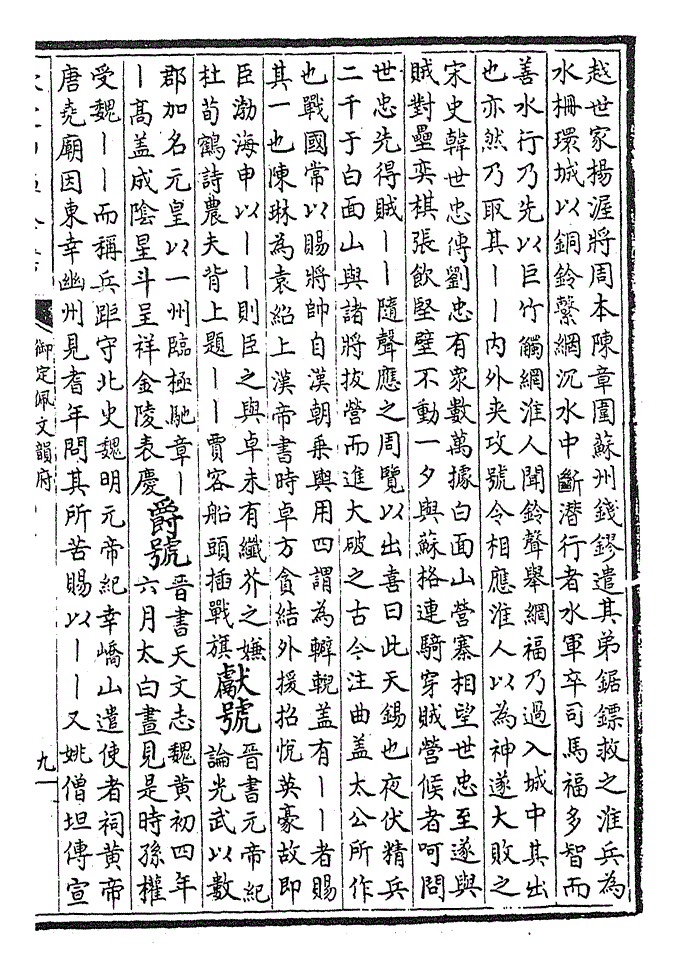 越世家楊渥將周本陳章圍蘇州錢鏐遣其弟鋸鏢救之淮兵為
水柵環城以銅鈴繫網沉水中斷潛行者水軍卒司馬福多智而
善水行乃先以巨竹觸網淮人聞鈴聲舉網福乃過入城中其出
也亦然乃取其丨丨内外夾攻號令相應淮人以為神遂大敗之
宋史韓世忠傳劉忠有衆數萬據白面山營寨相望世忠至遂與
賊對壘奕棋張飲堅壁不動一夕與蘇格連騎穿賊營候者呵問
世忠先得賊丨丨隨聲應之周覽以出喜曰此天錫也夜伏精兵
二千于白面山與諸將拔營而進大破之古今注曲盖太公所作
也戰國常以賜將帥自漢朝乗輿用四謂為輗盖有丨丨者賜
其一也陳琳為袁紹上漢帝書時卓方貪結外援招悦英豪故即
臣渤海申以丨丨則臣之與卓未有纖芥之嫌
杜荀鶴詩農夫背上題丨丨賈客船頭插戰旗
獻號
晋書元帝紀
論光武以數
郡加名元皇以一州臨極馳章丨
丨高盖成陰星斗呈祥金陵表慶
爵號
晋書天文志魏黄初四年
六月太白晝見是時孫權
受魏丨丨而稱兵距守北史魏明元帝紀幸嶠山遣使者祠黄帝
唐堯廟因東幸幽州見耆年問其所苦賜以丨丨又姚僧坦傳宣
御定佩文韻府
九